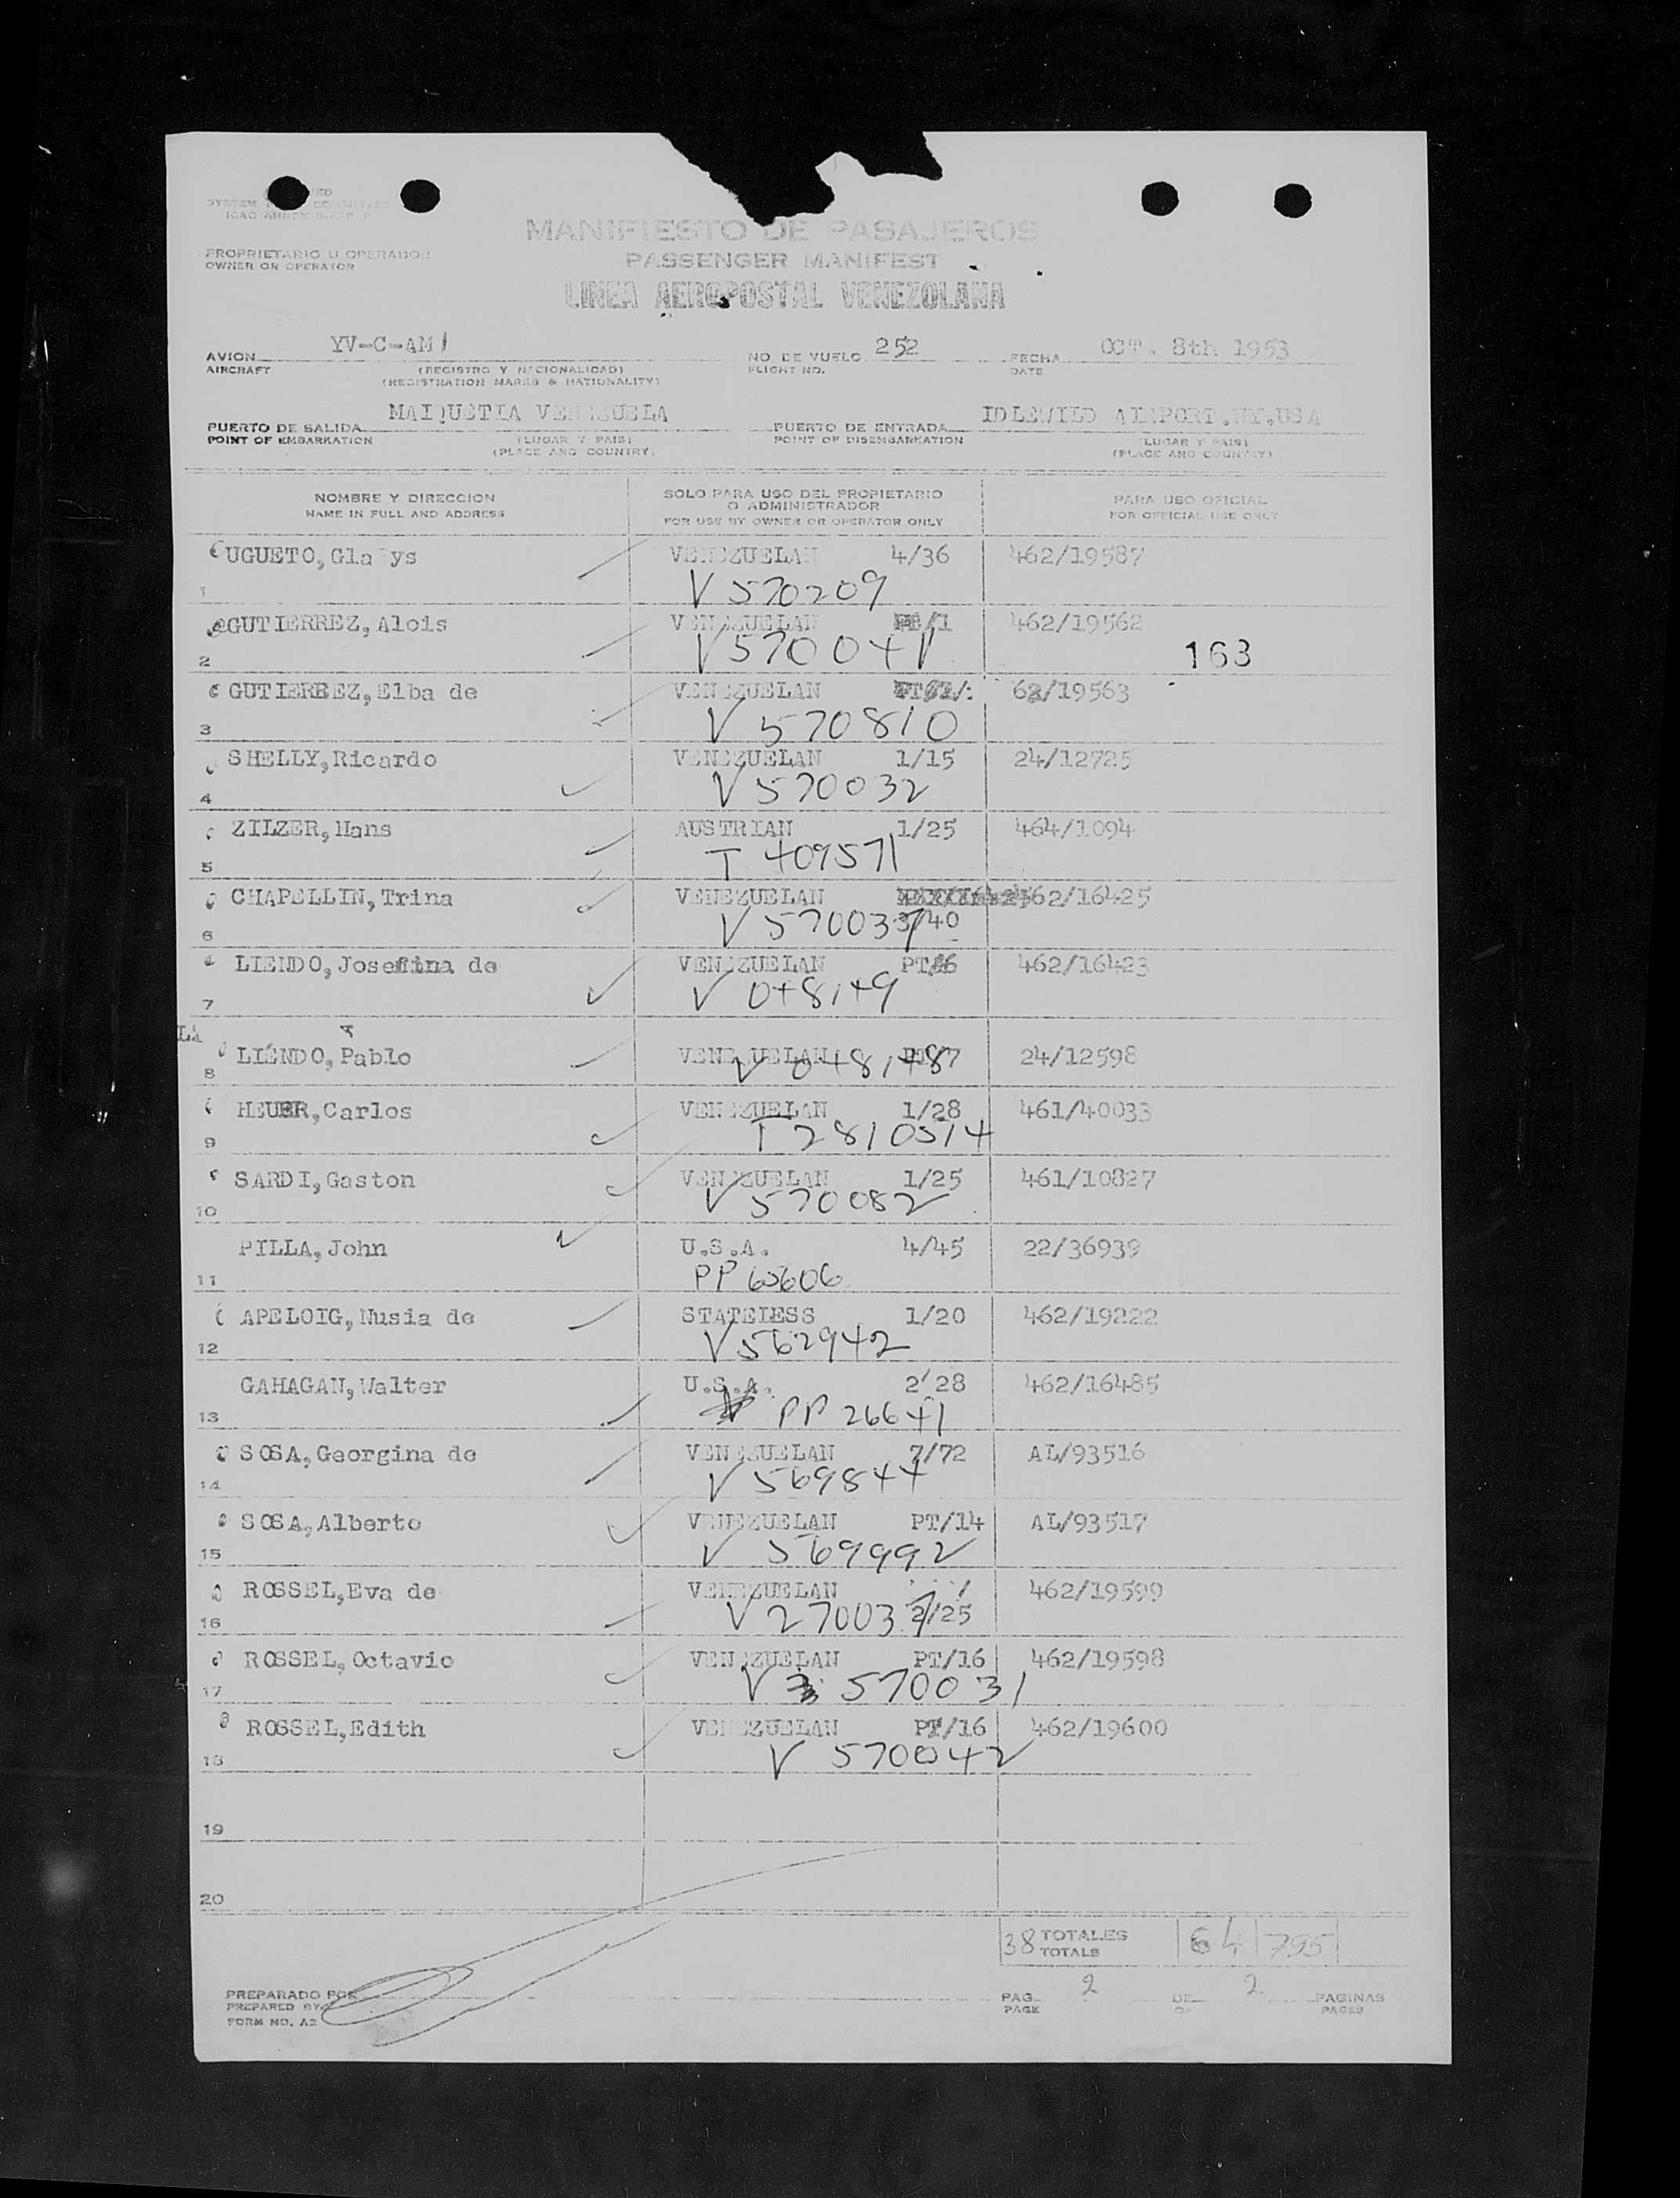 MANIFIESTO DE PASAJEROS
PROPRIETARIO U OPERADOR
OWNER OR OPERATOR
PASSENGER MANIFEST
LINEA AEROPOSTAL VENEZOLANA
AVION YV-C-AM1 NO. DE VUELO 252 FECHA OCT. 8th 1953
AIRCRAFT (REGISTRO Y NACIONALIDAD) FLIGHT NO. DATE
(REGISTRATION MARKS & NATIONALITY)
PUERTO DE SALIDA MAIQUETIA VENEZUELA PUERTO DE ENTRADA IDLEWILD AIRPORT.NY.USA
POINT OF EMBARKATION (LUGAR Y PAIS) POINT OF DISEMBARKATION (LUGAR Y PAIS)
(PLACE AND COUNTRY) (PLACE AND COUNTRY)
NOMBRE Y DIRECCION SOLO PARA USO DEL PROPIETARIO PARA USO OFICIAL
O ADMINISTRADOR
NAME IN FULL AND ADDRESS FOR USE BY OWNER OR OPERATOR ONLY FOR OFFICIAL USE ONLY
UGUETO, Gla ys VENEZUELAN 4/36 462/19587
1 V 570209
GUTIERREZ, Alois VENEZUELAN 462/19562
2 V570041 163
GUTIERREZ, Elba de VENEZUELAN 62/19563
3 V 570810
SHELLY, Ricardo VENEZUELAN 1/15 24/12725
4 V 570032
ZILZER, Hans AUSTRIAN 1/25 464/1094
5 T 409571
CHAPELLIN, Trina VENEZUELAN 462/16425
6 V 570037 3/40
LIENDO, Josefina de VENEZUELAN PT/6 462/16423
7 V 048149
LIENDO, Pablo VENEZUELAN 24/12598
8 V 048148
HEUER, Carlos VENEZUELAN 1/28 461/40033
9 T 2810514
SARDI, Gaston VENEZUELAN 1/25 461/10827
10 V 570082
PILLA, John U.S.A. 4/45 22/36939
11 PP 65606
APELOIG, Nusia de STATELESS 1/20 462/19222
12 V562942
GAHAGAN, Walter U.S.A. 2'28 462/16485
13 PP 26641
SOSA, Georgina de VENEZUELAN 7/72 AL/93516
14 V 569844
SOSA, Alberto VENEZUELAN PT/14 AL/93517
15 V 569992
ROSSEL, Eva de VENEZUELAN 462/19599
16 V 270037 2/25
ROSSEL, Octavio VENEZUELAN PT/16 462/19598
17 V 570031
ROSSEL, Edith VENEZUELAN PT/16 462/19600
18 V 570042
19
20
38 TOTALES 64 795
TOTALS
PREPARADO POR PAG. 2 DE 2 PAGINAS
PREPARED BY PAGE OF PAGES
FORM NO. A2